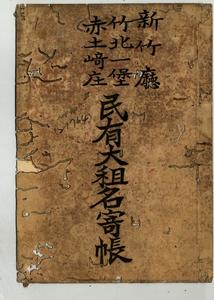 新竹廳
竹北一堡
赤土崎庄
民有大租名寄帳